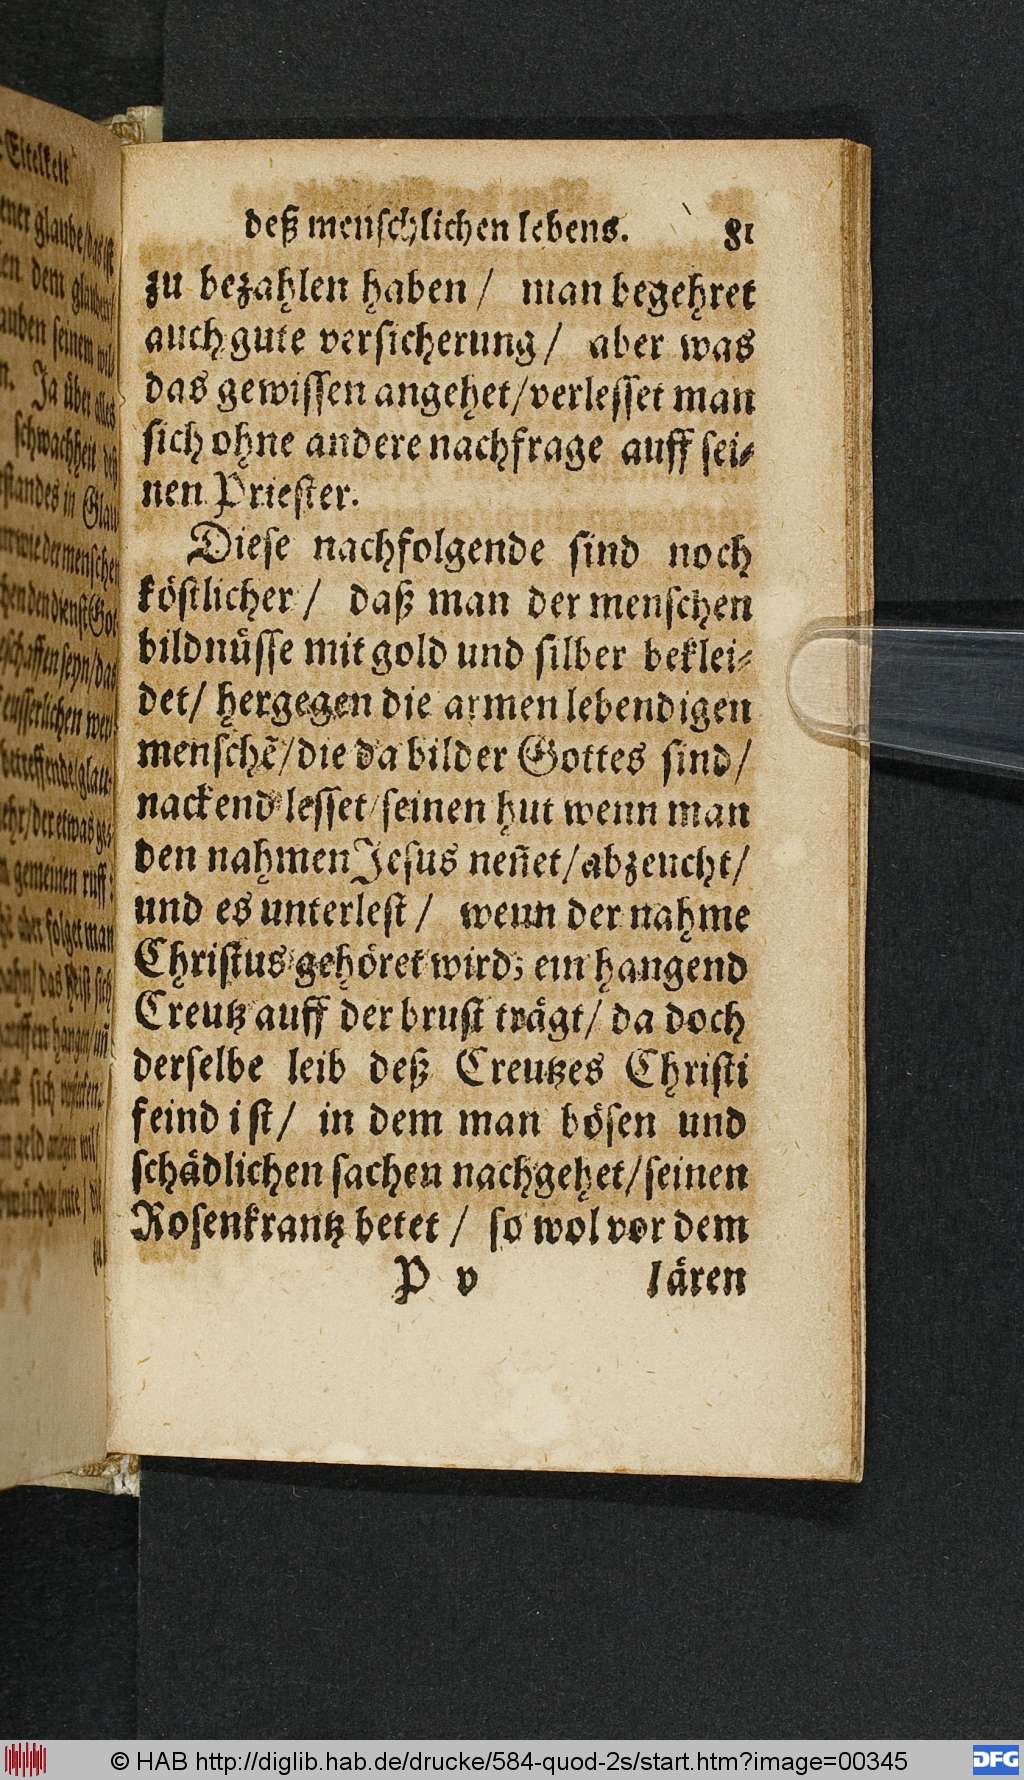 deß menschlichen lebens. 81
zu bezahlen haben / man begehret
auch gute versicherung / aber was
das gewissen angehet / verlesset man
sich ohne andere nachfrage auff sei-
nen Priester.
Diese nachfolgende sind noch
köstlicher / daß man der menschen
bildnüsse mit gold und silber beklei-
det / hergegen die armen lebendigen
menschē / die da bilder Gottes sind /
nackend lesset / seinen hut wenn man
den nahmen Jesus neñet / abzeucht /
und es unterlest / wenn der nahme
Christus gehöret wird; ein hangend
Creutz auff der brust trägt / da doch
derselbe leib deß Creutzes Christi
feind ist / in dem man bösen und
schädlichen sachen nachgehet / seinen
Rosenkrantz betet / so wol vor dem
P v lären
: Eitelkeit
glaube / das ist
dem glauben /
seinem
Ja über alles
schwachheit deß
standes in Glau
wie der menschen
den dienst Got
schaffen seyn / das
eusserlichen
betreffende / glau-
/ der etwas ge-
gemeinen ruff:
aber folget man
/ das sich
hangen / uñ
sich
geld
© HAB http://diglib.hab.de/drucke/584-quod-2s/start.htm?image=00345
DFG